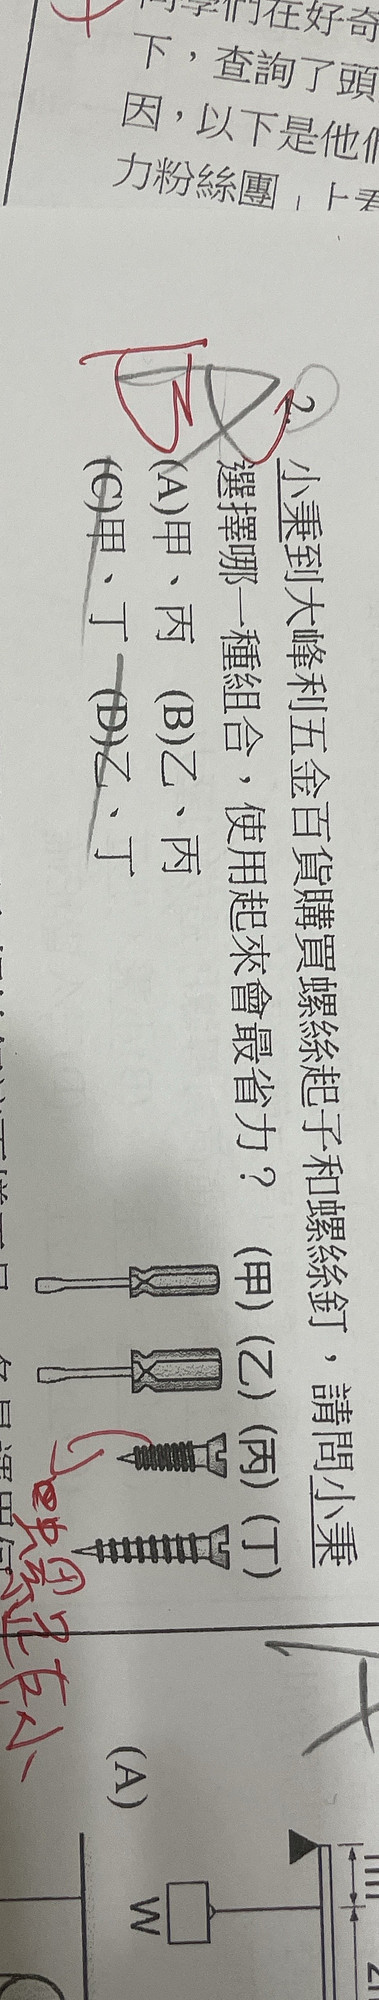 同學們在好奇
下，查詢了頭
因，以下是他們
力粉絲團
B
2. 小秉到大峰利五金百貨購買螺絲起子和螺絲釘，請問小秉
選擇哪一種組合，使用起來會最省力？ (甲) (乙) (丙) (丁)
(A)甲、丙 (B)乙、丙
(C)甲、丁 (D)乙、丁
螺距小
(A)
W